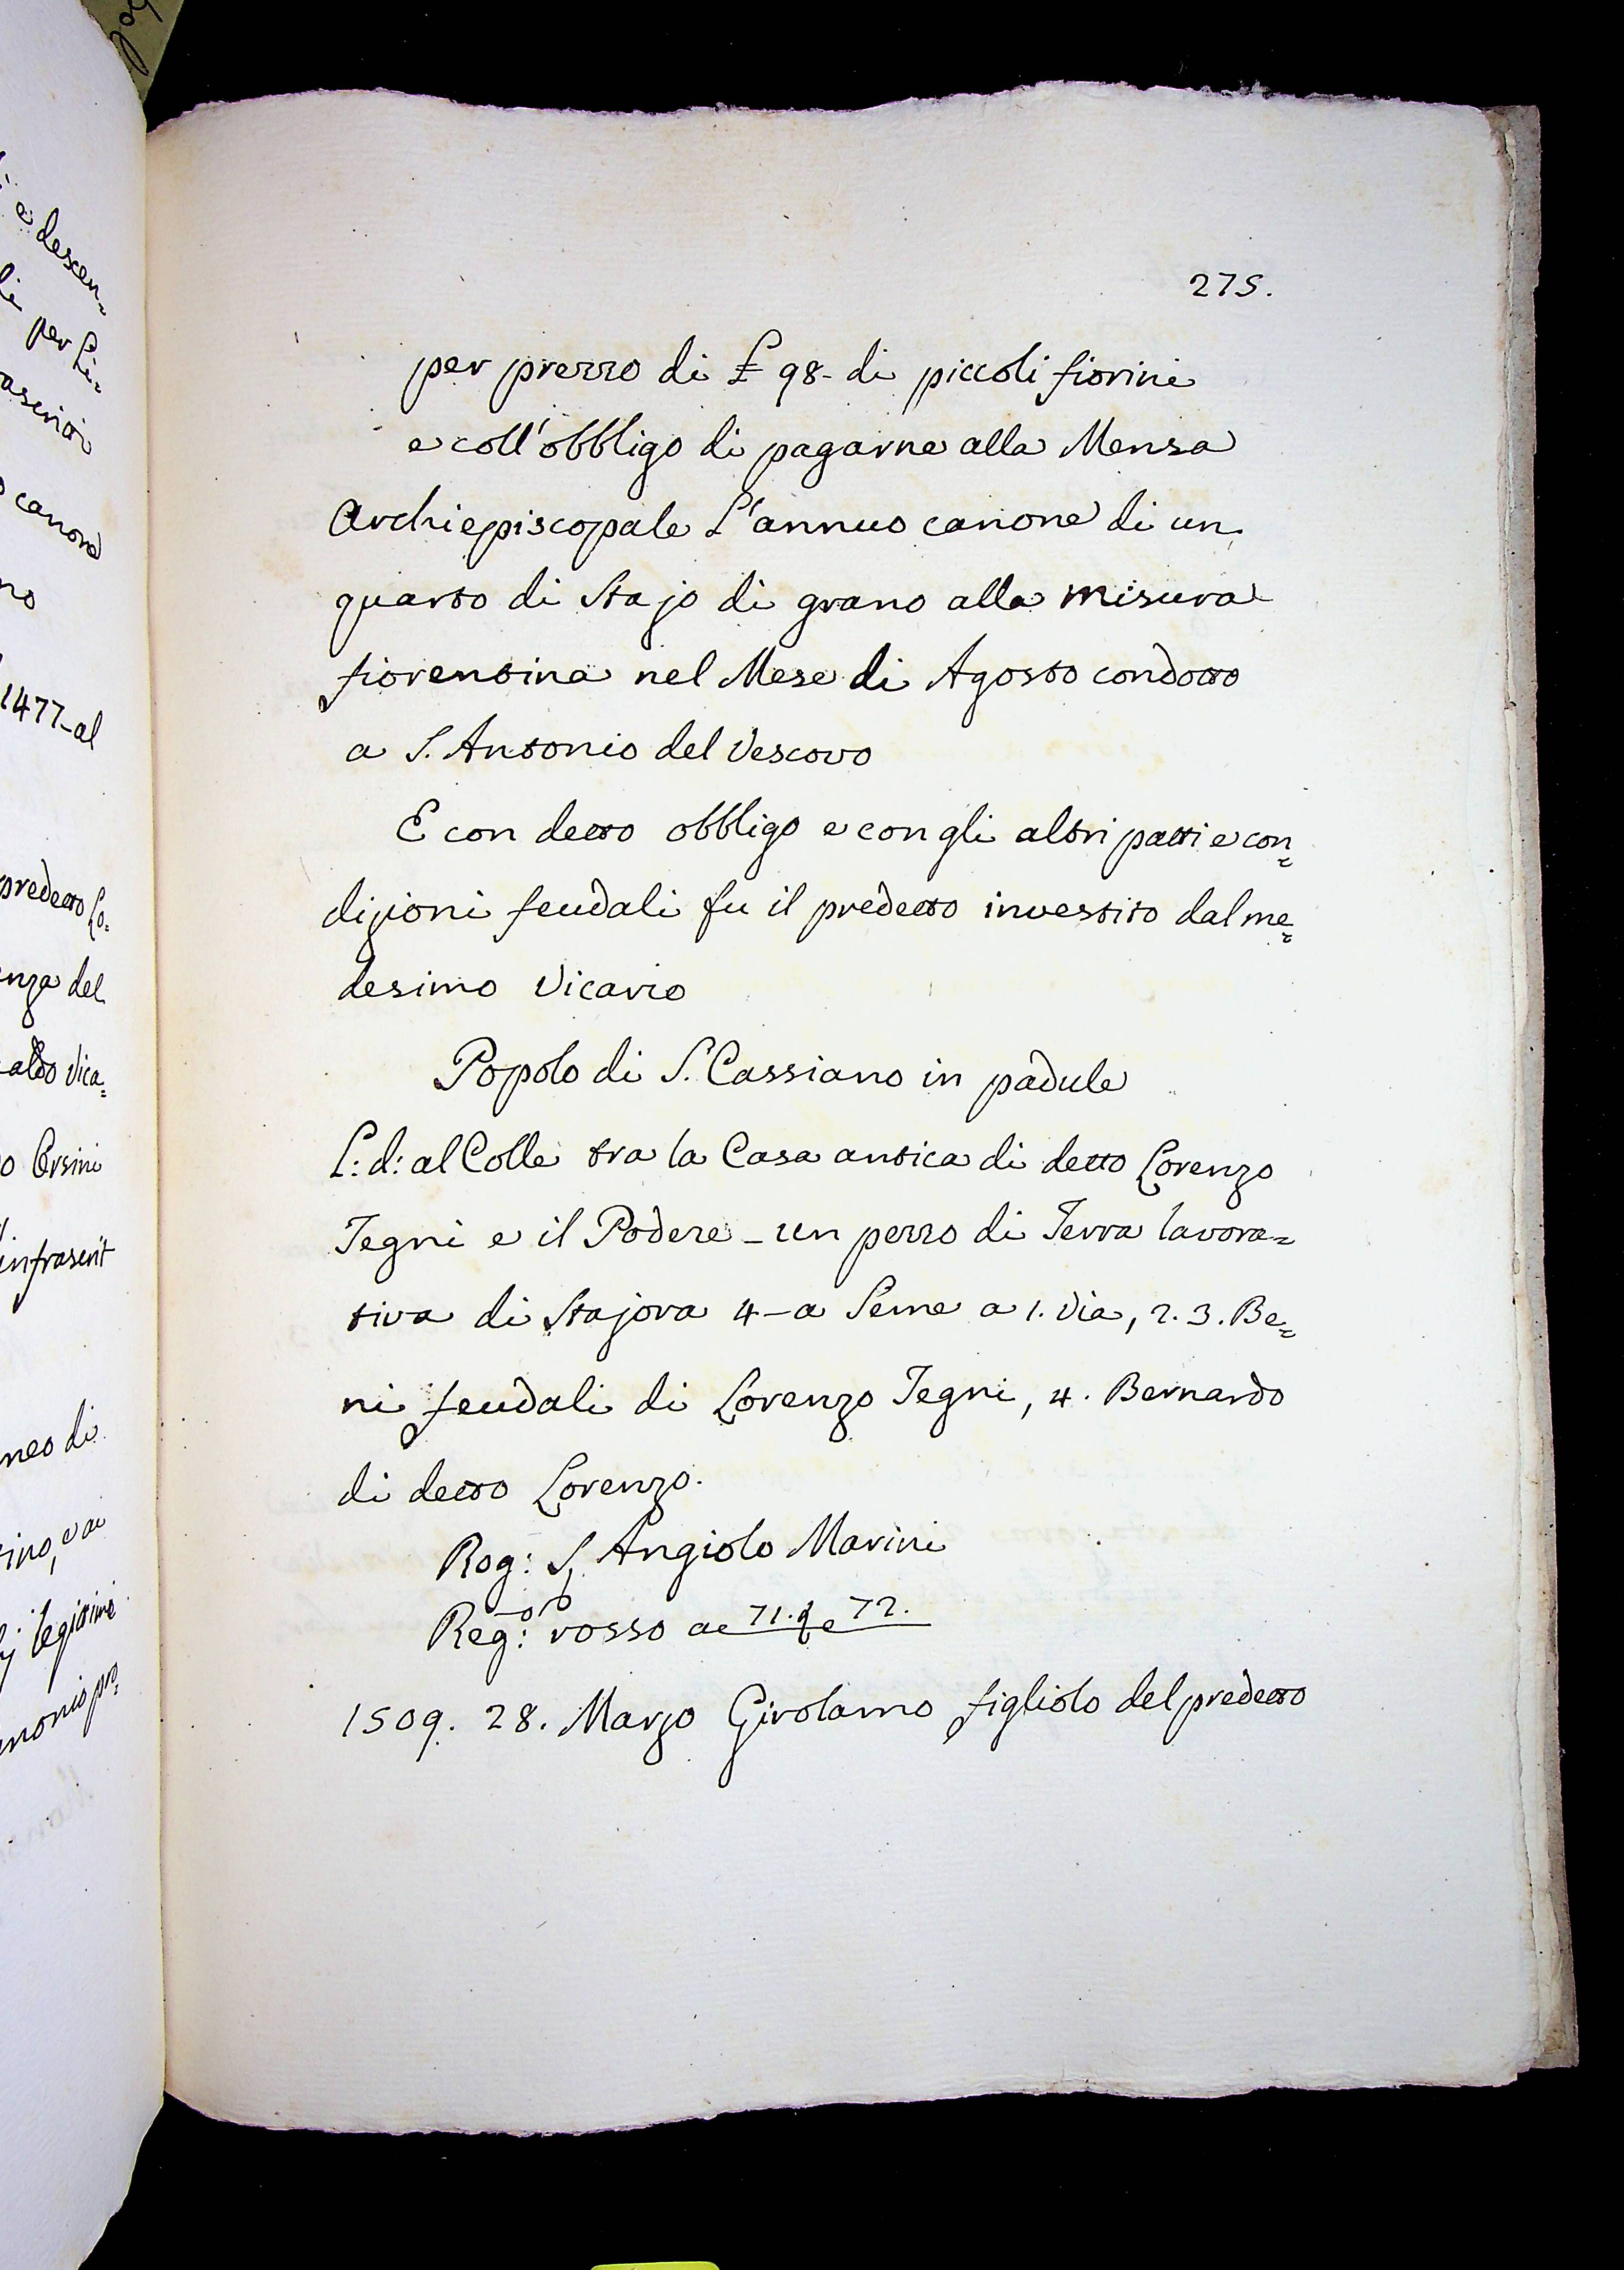 275.
per prezzo di £ 98- di piccoli fiorini
e coll'obbligo di pagarne alla Mensa
Archiepiscopale L'annuo canone di un
quarto di Stajo di grano alla misura
fiorentina nel Mese di Agosto condotto
a S. Antonio del Vescovo
E con detto obbligo e con gli altri patti e con=
dizioni feudali fu il predetto investito dal me=
desimo Vicario
Popolo di S. Cassiano in padule
L: d: al Colle tra la Casa antica di detto Lorenzo
Tegni e il Podere - un pezzo di Terra lavora=
tiva di Stajora 4 - a Seme a 1. Via, 2. 3. Be=
ni feudali di Lorenzo Tegni, 4. Bernardo
di detto Lorenzo.
Rog: S. Angiolo Marini
Reg: rosso a 71. e 72.
1509. 28. Marzo Girolamo figliolo del predetto
e descen=
per Li=
canone
no
1477-al
predetto Lo.
del
Vica=
infrascrit
neo di
legitimi